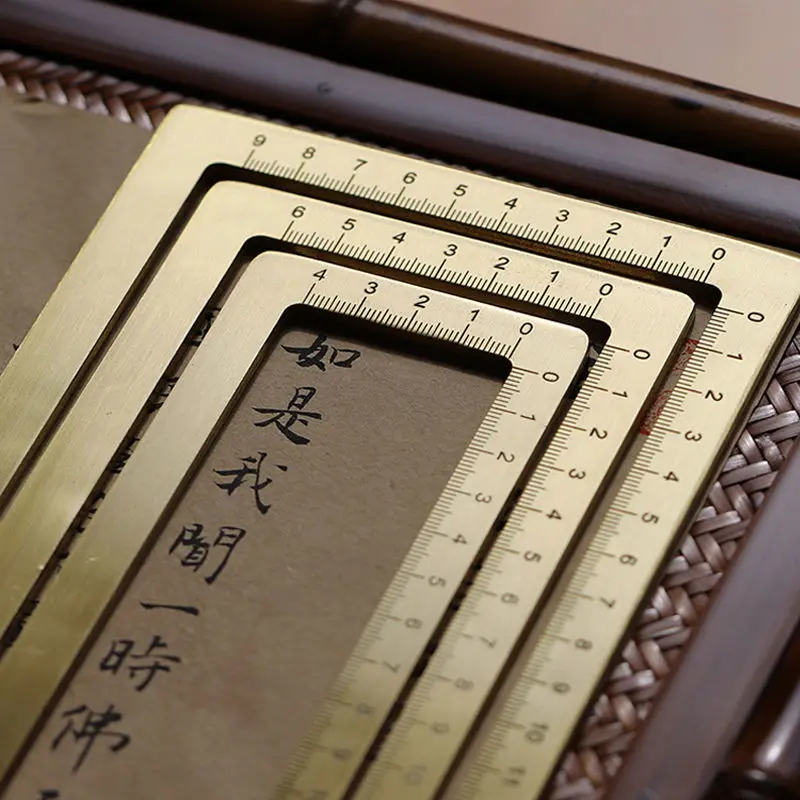 9 8 7 6 5 4 3 2 1 0
0 1 2 3 4 5 6 7 8 9 10 11
6 5 4 3 2 1 0
0 1 2 3 4 5 6 7 8 9 10
4 3 2 1 0
0 1 2 3 4 5 6 7 8 9
如是我聞一時佛